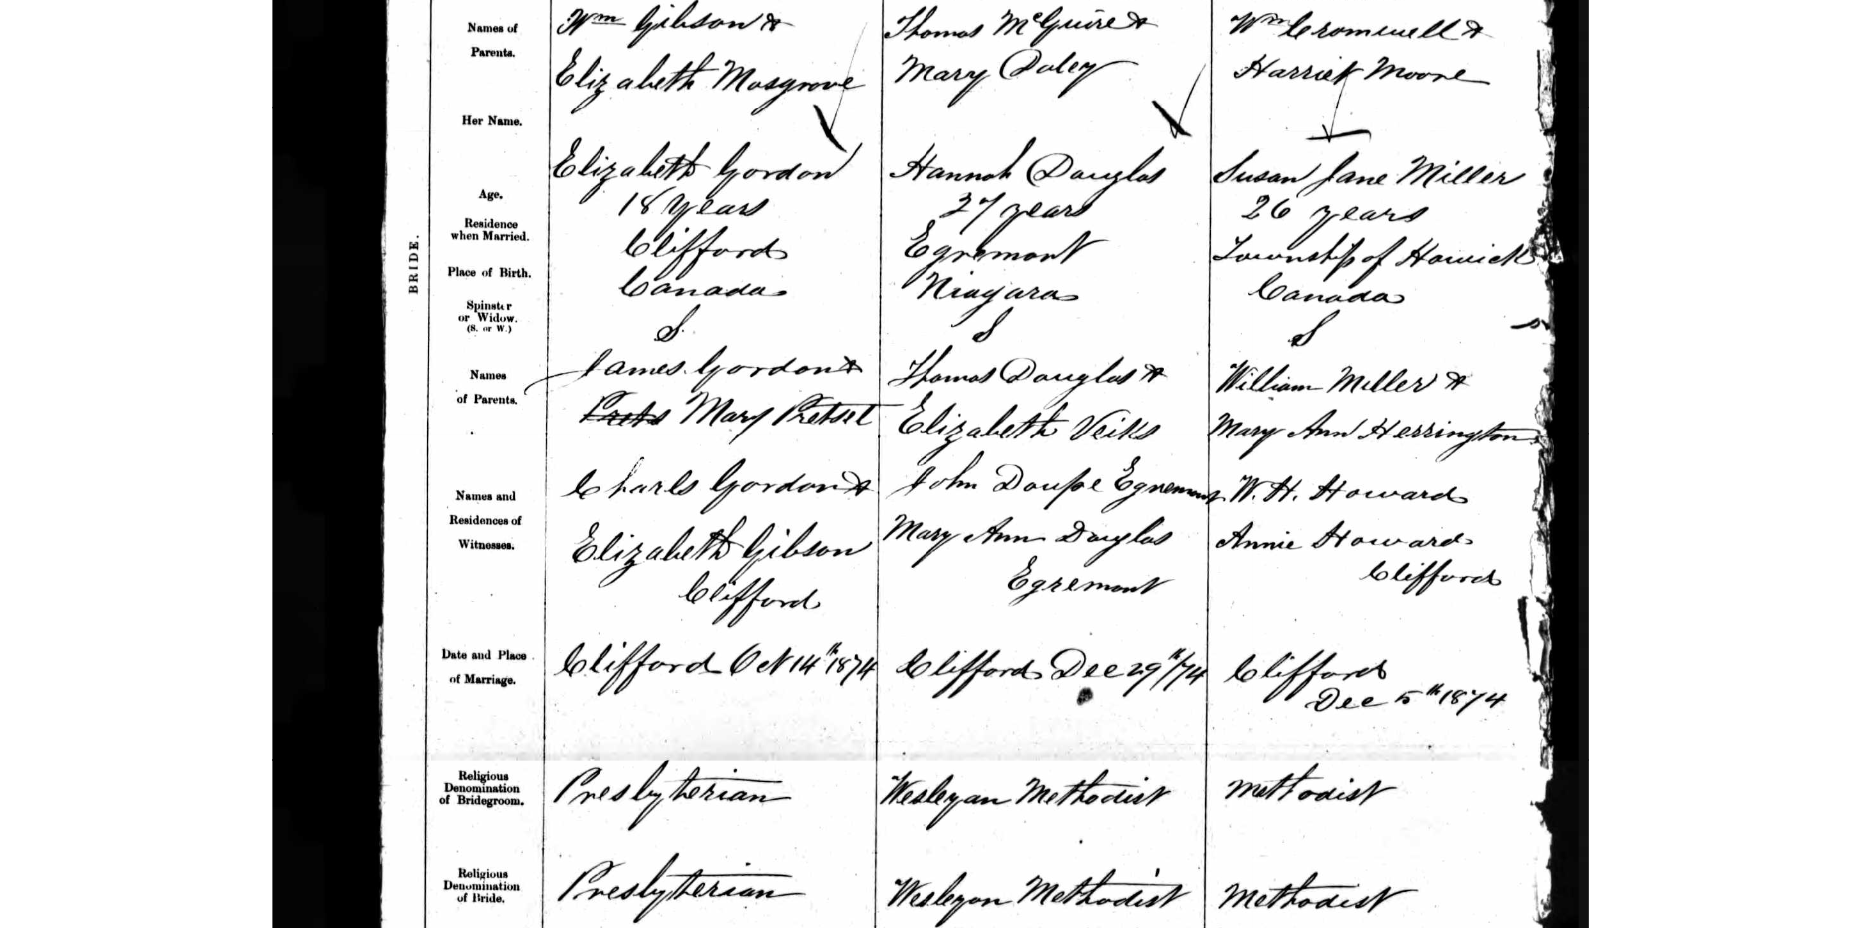 Names of
Parents.
Wm Gibson &
Elizabeth Mosgrove
Thomas McGuire &
Mary Daley
Wm Cromwell &
Harriet Moore
BRIDE.
Her Name.
Elizabeth Gordon
Hannah Douglas
Susan Jane Miller
Age.
18 Years
27 years
26 years
Residence
when Married.
Clifford
Egremont
Township of Howick
Place of Birth.
Canada
Niagara
Canada
Spinster
or Widow.
(S. or W.)
S.
S
S
Names
of Parents.
James Gordon &
Mary Pretset
Thomas Douglas &
Elizabeth Veiks
William Miller &
Mary Ann Herrington
Names and
Residences of
Witnesses.
Charls Gordon &
Elizabeth Gibson
Clifford
John Doupe Egremont
Mary Ann Douglas
Egremont
W. H. Howard
Annie Howard
Clifford
Date and Place
of Marriage.
Clifford Oct 14th 1874
Clifford Dec 29th/74
Clifford
Dec 5th 1874
Religious
Denomination
of Bridegroom.
Presbyterian
Wesleyan Methodist
Methodist
Religious
Denomination
of Bride.
Presbyterian
Wesleyan Methodist
Methodist